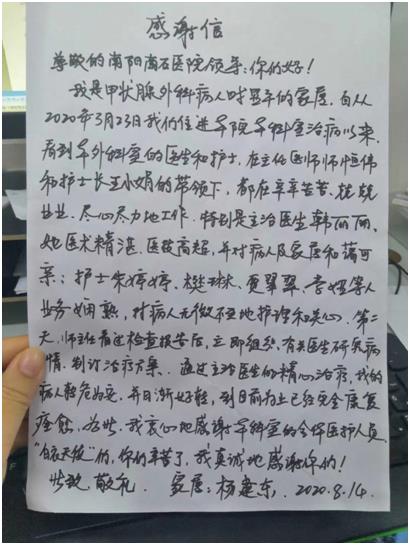 感谢信
尊敬的南阳南石医院领导：你们好！
我是甲状腺外科病人时显平的家属，自从
2020年3月23日我们住进乎院乎科室治病以来，
看到乎外科室的医生和护士，在主任医师师恒伟
和护士长王小娟的带领下，都在辛辛苦苦、兢兢
业业、尽心尽力地工作。特别是主治医生韩丽丽，
她医术精湛、医技高超，并对病人及家属和蔼可
亲；护士朱婷婷、樊琳、贾翠翠、李妞等人
业务娴熟，对病人无微不至地护理和关心。第二
天，师主任看过检查报告后，立即组织有关医生研究病
情、制订治疗方案。通过主治医生的精心治疗，我的
病人转危为安，并日渐好转，到目前为止已经完全康复
痊愈，为此，我衷心地感谢乎科室的全体医护人员，
“白衣天使”的，你们辛苦了，我真诚地感谢你们！
此致 敬礼。 家属：杨建东. 2020.8.14.